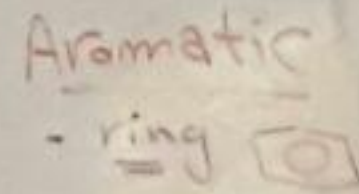 Aromatic
- ring